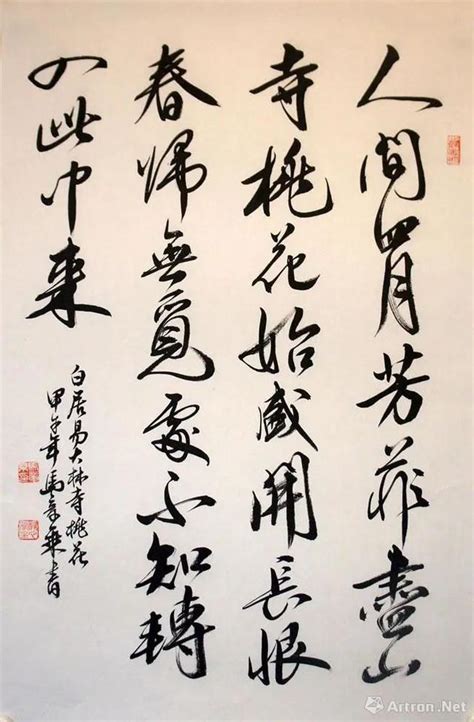 人間四月芳菲盡山
寺桃花始盛開長恨
春歸無覓處不知轉
入此中來
白居易大林寺桃花
年馬
Artron.Net